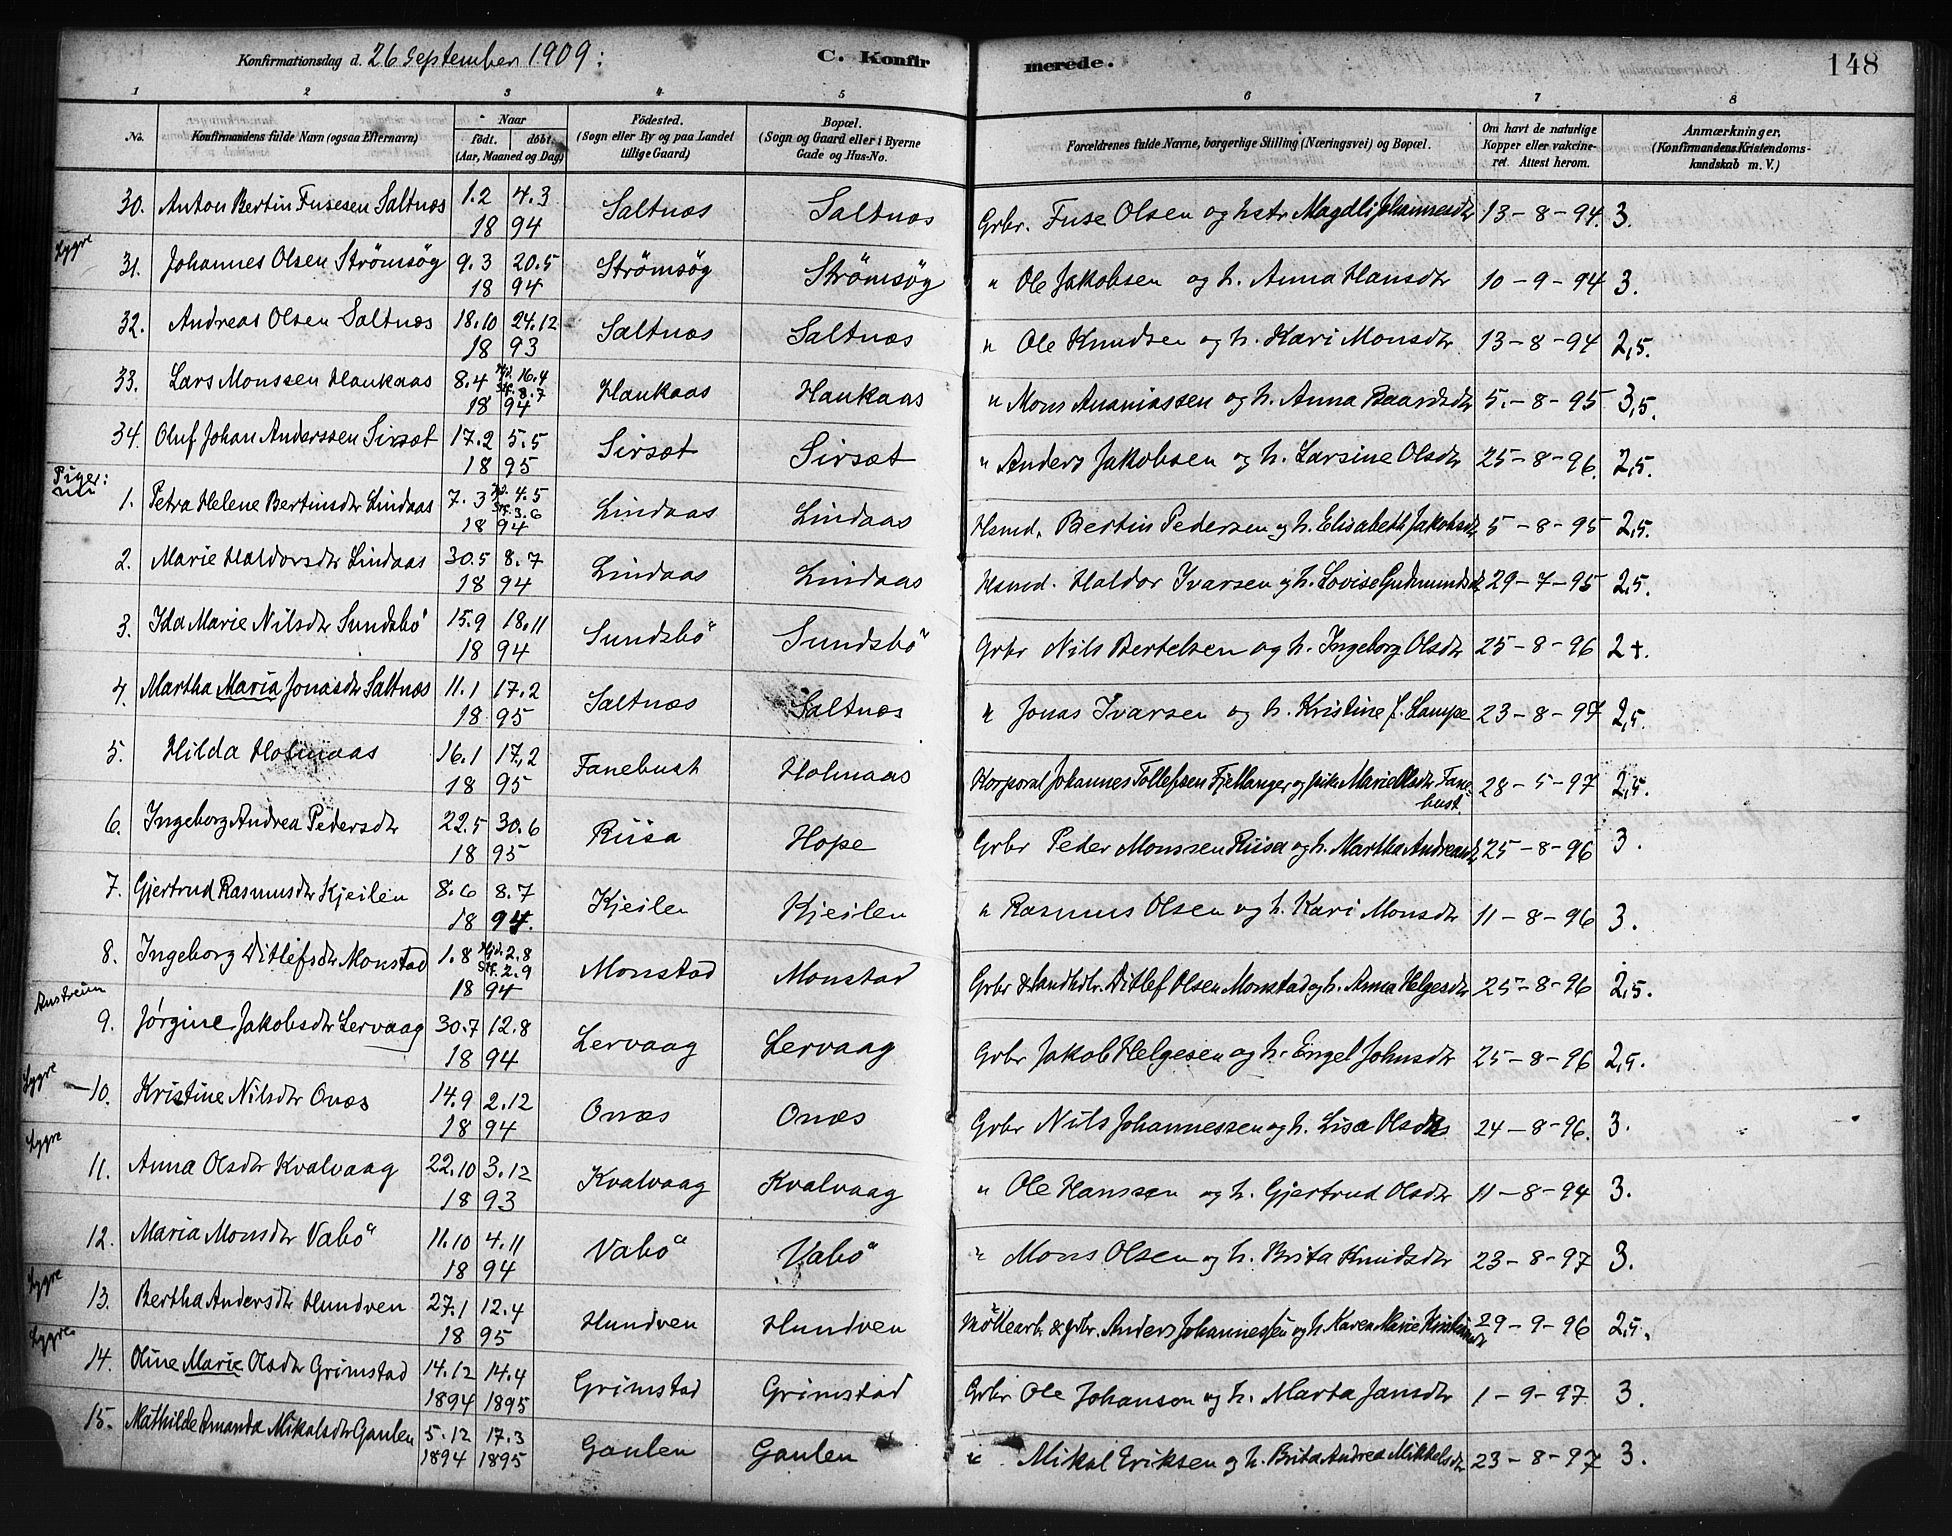 Konfirmationsdag d. 26 September 1909:
C. Konfirmerede.
148
1 2 3 4 5 6 7 8
No. Konfirmandens fulde Navn (ogsaa Efternavn) Naar født. døbt. (Aar, Maaned og Dag) Fødested. (Sogn eller By og paa Landet tillige Gaard) Bopæl. (Sogn og Gaard eller i Byerne Gade og Hus-No. Forældrenes fulde Navne, borgerlige Stilling (Næringsvei) og Bopæl. Om havt de naturlige Kopper eller vaccineret. Attest herom. Anmærkninger. (Konfirmandens Kristendomskundskab m. V.)
30. Anton Bertin Fusesen Saltnæs 1.2 4.3 1894 Saltnæs Saltnæs Grbr. Fuse Olsen og hstr Magdli Johannesdtr 13-8-94. 3.
Lygre
31. Johannes Olsen Strömsög 9.3 20.5 1894 Strömsög Strömsög " Ole Jakobsen og h. Anna Hansdtr 10-9-94 3.
32. Andreas Olsen Saltnæs 18.10 24.12 1893 Saltnæs Saltnæs " Ole Knudsen og h. Kari Monsdtr 13-8-94 2,5.
33. Lars Monssen Haukaas 8.4 Hjd. 16.4 Stf. 8.7 1894 Haukaas Haukaas " Mons Ananiassen og h. Anna Baardsdtr 5.-8-95 3,5.
34. Oluf Johan Anderssen Sirsæt 17.2 5.5 1895 Sirsæt Sirsæt " Anders Jakobsen og h. Larsine Olsdtr 25-8-96. 2,5.
Piger:
1. Petra Helene Bertinsdtr Lindaas 7.3 Hjd. 4.5 Stf. 3.6 1894 Lindaas Lindaas Hsmd. Bertin Pedersen og h. Elisabeth Jakobsdtr 5-8-95 2,5.
2. Marie Haldorsdtr Lindaas 30.5 8.7 1894 Lindaas Lindaas Hsmd. Haldor Ivarsen og h. Lovise Gudmundsdtr 29-7-95 2,5.
3. Ida Marie Nilsdtr Sundsbö 15.9 18.11 1894 Sundsbö Sundsbö Grbr Nils Bertelsen og h. Ingeborg Olsdtr 25-8-96 2+.
4. Martha Maria Jonasdtr Saltnæs 11.1 17.2 1895 Saltnæs Saltnæs " Jonas Ivarsen og h. Kristine f. Lampe 23-8-97 2,5.
5. Hilda Holmaas 16.1 17.2 1895 Fanebust Holmaas Korporal Johannes Tollefsen Fjellanger og pike Marie Olsdtr Fanebust. 28-5-97 2,5.
6. Ingeborg Andrea Pedersdtr 22.5 30.6 1895 Riisa Hope Grbr Peder Monssen Riisa og h. Martha Andreasdtr 25-8-96 3.
7. Gjertrud Rasmusdtr Kjeilen 8.6 8.7 1894. Kjeilen Kjeilen " Rasmus Olsen og h. Kari Monsdtr 11-8-96 3.
8. Ingeborg Ditlefsdtr Monstad 1.8 Hjd. 2.8 Stf. 2.9 1894 Monstad Monstad Grbr & Landhdlr. Ditlef Olsen Monstad og h. Anna Helgesdtr 25-8-96 2,5.
Austreim
9. Jørgine Jakobsdtr Lervaag 30.7 12.8 1894 Lervaag Lervaag Grbr Jakob Helgesen og h. Engel Johnsdtr 25-8-96 2,5.
Lygre
10. Kristine Nilsdtr Onæs 14.9 2.12 1894 Onæs Onæs Grbr Nils Johannessen og h. Lisa Olsdtr 24-8-96. 3.
Lygre
11. Anna Olsdtr Kvalvaag 22.10 3.12 1893 Kvalvaag Kvalvaag " Ole Hanssen og h. Gjertrud Olsdtr 11-8-94 3.
12. Maria Monsdtr Vabö 11.10 4.11 1894 Vabö Vabö " Mons Olsen og h. Brita Knudsdtr 23-8-97 3.
Lygre
13. Bertha Andersdtr Hundven 27.1 12.4 1895 Hundven Hundven Möllearb. & grbr. Anders Johannessen og h. Karen Marie 29-9-96 2,5.
Lygre
14. Oline Marie Olsdtr Grimstad 14.12 14.4 1894 1895 Grimstad Grimstad Grbr Ole Johanson og h. Marta Jansdtr 1-9-97 3.
15. Mathilde Amanda Mikalsdtr Gaulen 5.12 17.3 1894 1895 Gaulen Gaulen " Mikal Eriksen og h. Brita Andrea Mikkelsdtr 23-8-97 3.